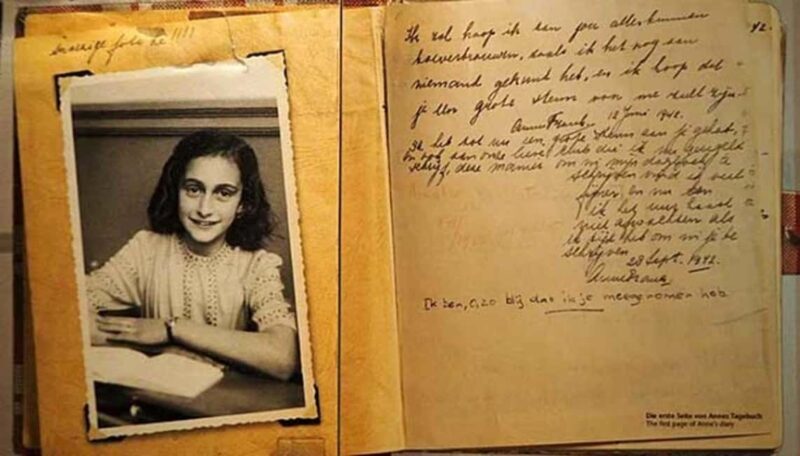 snoezige foto hè !!!!
42.
Ik zal hoop ik aan jou alles kunnen
toevertrouwen, zoals ik het nog aan
niemand gekund heb, en ik hoop dat
je een grote steun voor me zult zijn.
Anne Frank. 12 Juni 1942.
Ik heb tot nu een grote steun aan je gehad,
en ook aan onze lieve club die ik nu geregeld
schrijf, deze manier om in mijn dagboek te
schrijven vind ik veel
fijner en nu kan
ik het uur haast
niet afwachten als
ik tijd heb om in je te
schrijven
28 Sept. 1942.
Anne Frank
Ik ben, o, zo blij dat ik je meegenomen heb
Die erste Seite von Annes Tagebuch
The first page of Anne's diary